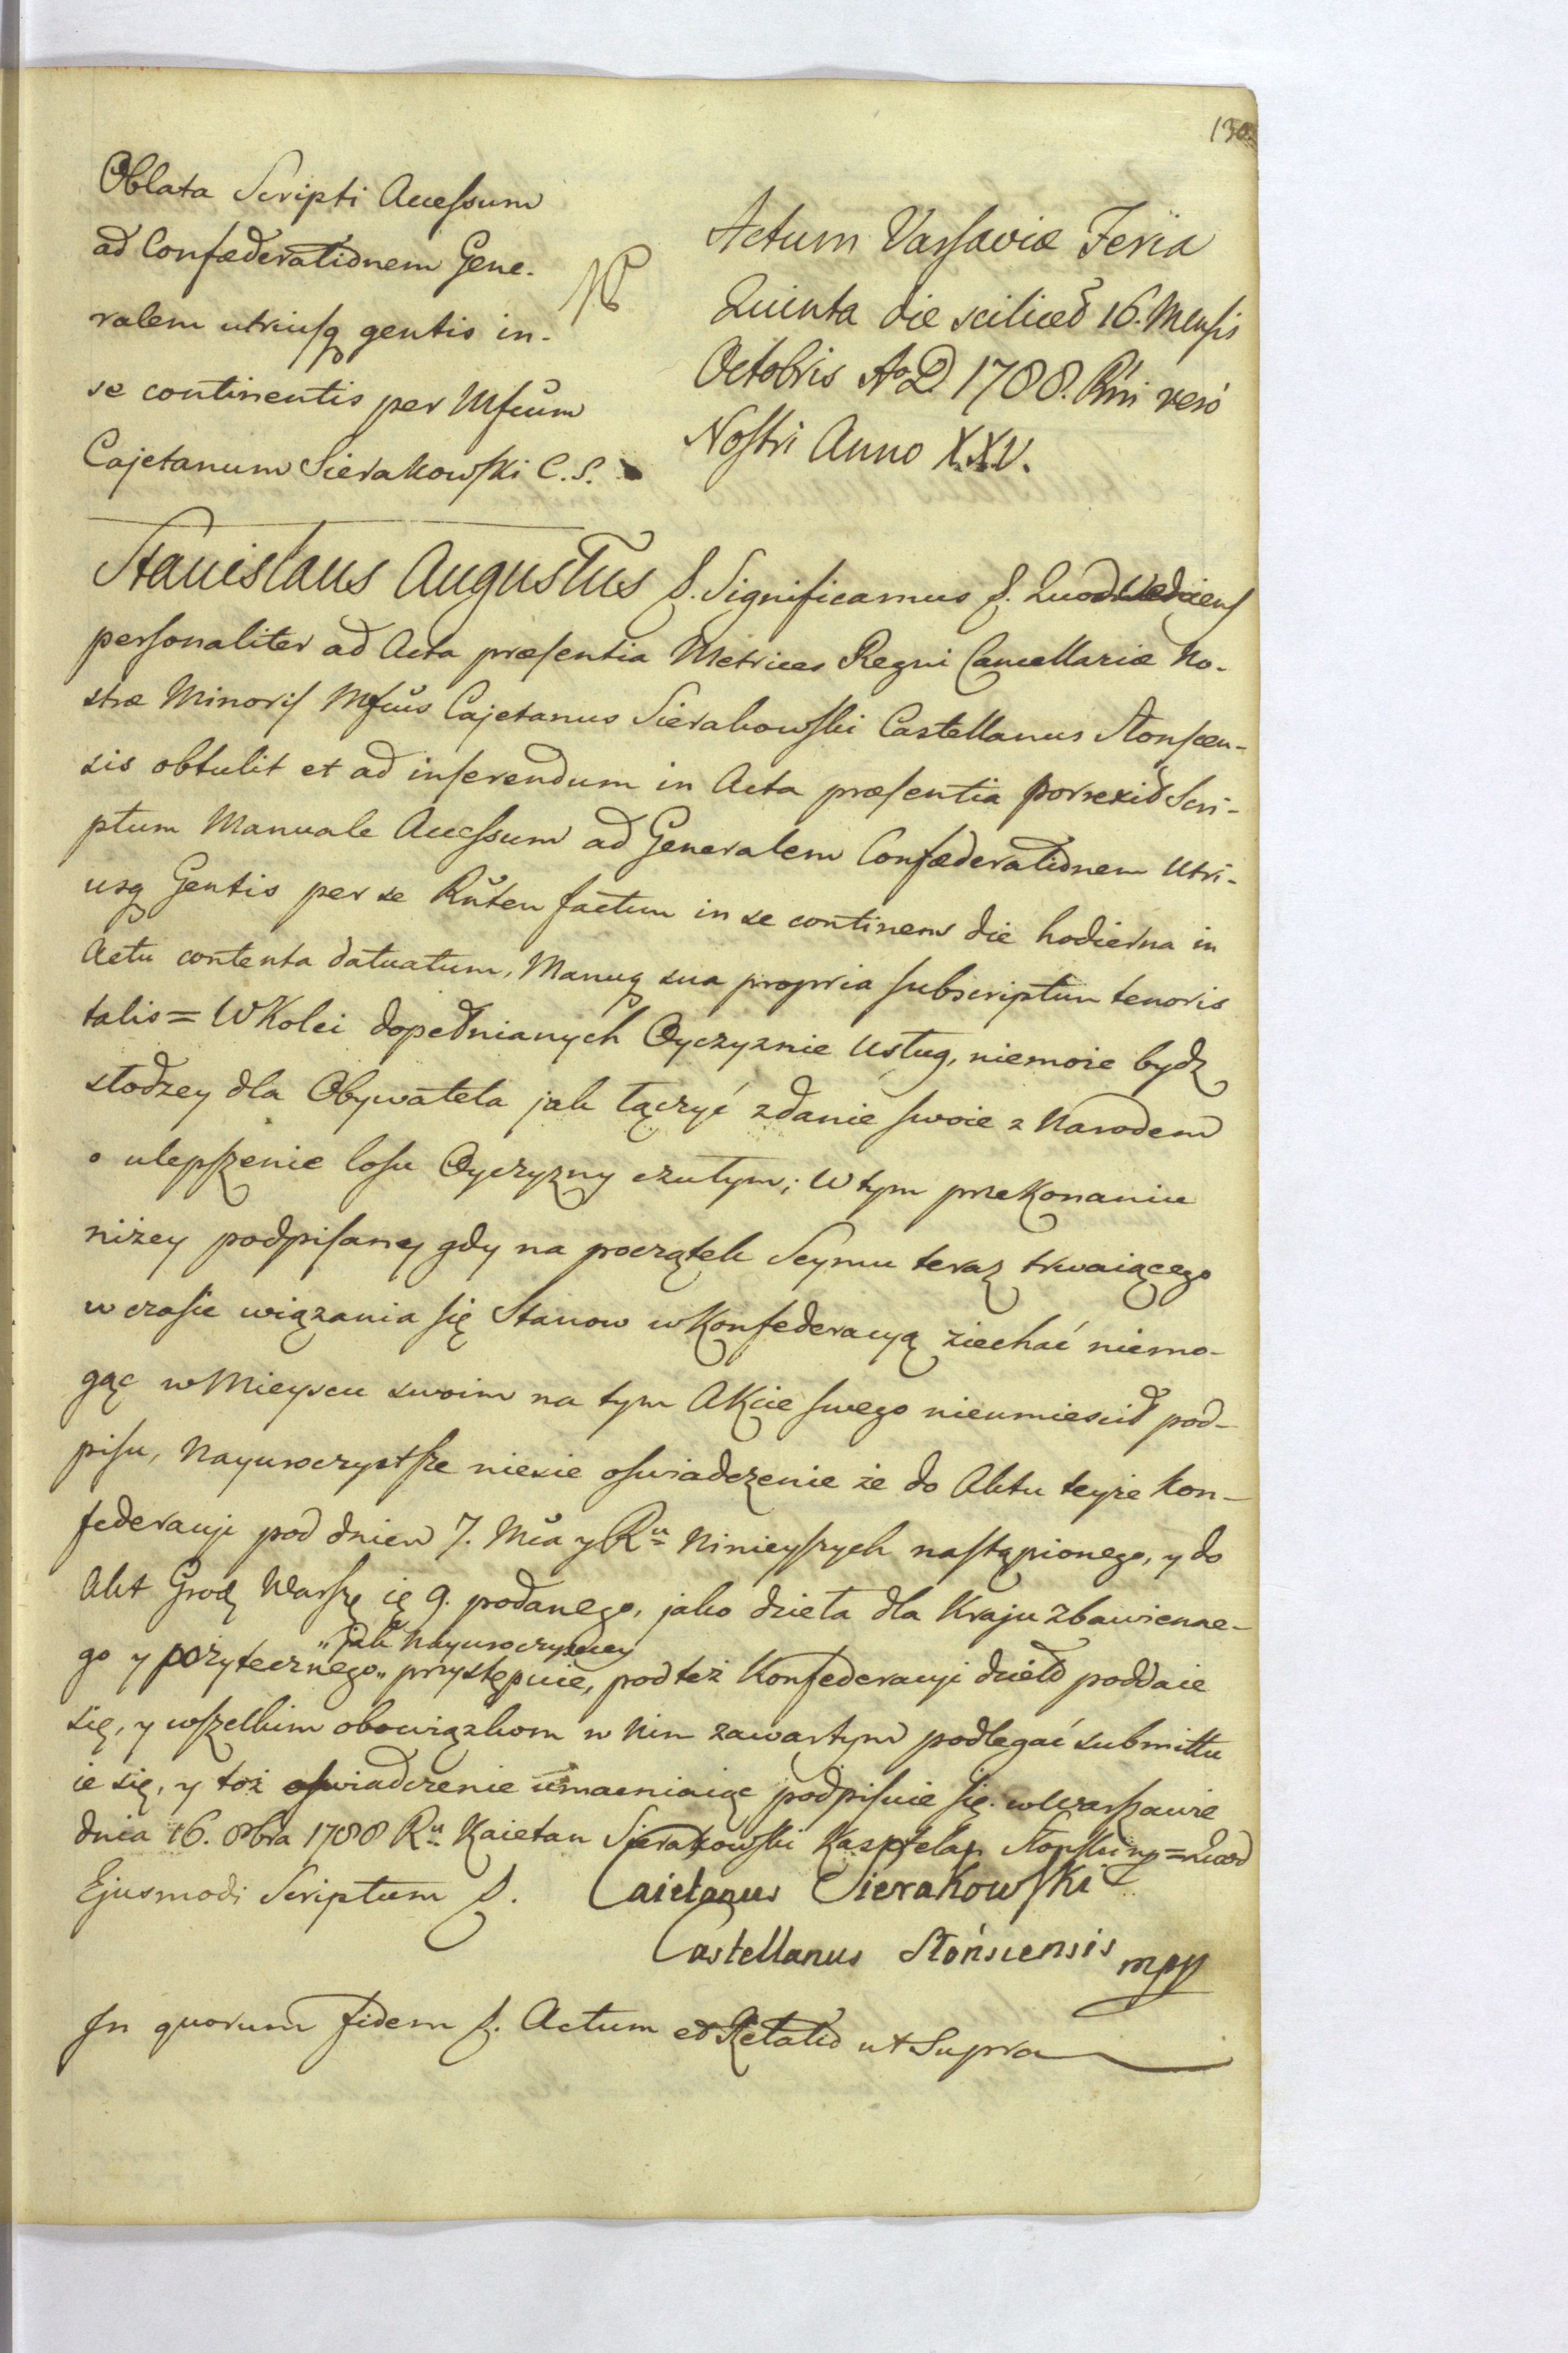 130.
Oblata Scripti Accessum
ad Confæderationem Gene-
ralem utriusq gentis in-
se continentis per Mfcum
Cajetanum Sierakowski C. S.
Actum Varsaviæ Feria
Quinta die scilicet 16. Mensis
Octobris Ao D. 1788. Rni vero
Nostri Anno XXV.
Stanislaus Augustus &. Significamus &. Quod veniens
personaliter ad Acta præsentia Metrices Regni Cancellariæ No-
stræ Minoris Mfcus Cajetanus Sierakowski Castellanus Slonscen-
sis obtulit et ad inserendum in Acta præsentia porrexit Scri-
ptum Manuale Accessum ad Generalem Confæderationem Utri-
usq Gentis per se Rnten factum in se continens die hodierna in
Actu contenta datuatum, Manuq sua propria subscriptum tenoris
talis = W Kolei dopełnianych Oyczyznie Usług, niemoże bydz
słodzey dla Obywatela jak łączyć zdanie swoie z Narodem
o ulepszenie losu Oyczyzny czułym; W tym przekonaniu
niżey podpisany gdy na początek Seymu teraz trwaiącego
w czasie wiązania się Stanow w Konfederacyą ziechać niemo-
gąc w Mieyscu swoim na tym Akcie swego nieumiescił pod-
pisu, Nayuroczystsze niesie oswiadczenie że do Aktu teyże Kon-
federacyi pod dniem 7. Mca y Ru Ninieyszych nastąpionego, y do
Akt Grodz Warsz 9. podanego, jako dzieła dla Kraju zbawienne-
go y pożytecznego „ jak Nayuroczyscey „ przystępuie, pod też Konfederacyi dzieło poddaie
się, y wszelkim obowiązkom w nim zawartym podlegać submittu
ie się, y toż oswiadczenie umacniaiąc podpisuie się. w Warszawie
dnia 16. 8bra 1788 Ru Kaietan Sierakowski Kasztelan Słonski mp = Quod
Ejusmodi Scriptum &. Caietanus Sierakowski
Castellanus Słońscensis mpp
In quorum Fidem &. Actum et Relatio ut Supra